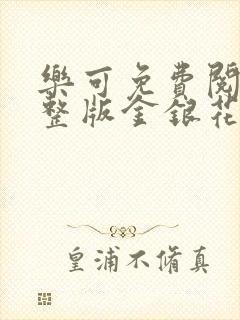 樂可免費閱
整版金銀花
皇浦不脩真